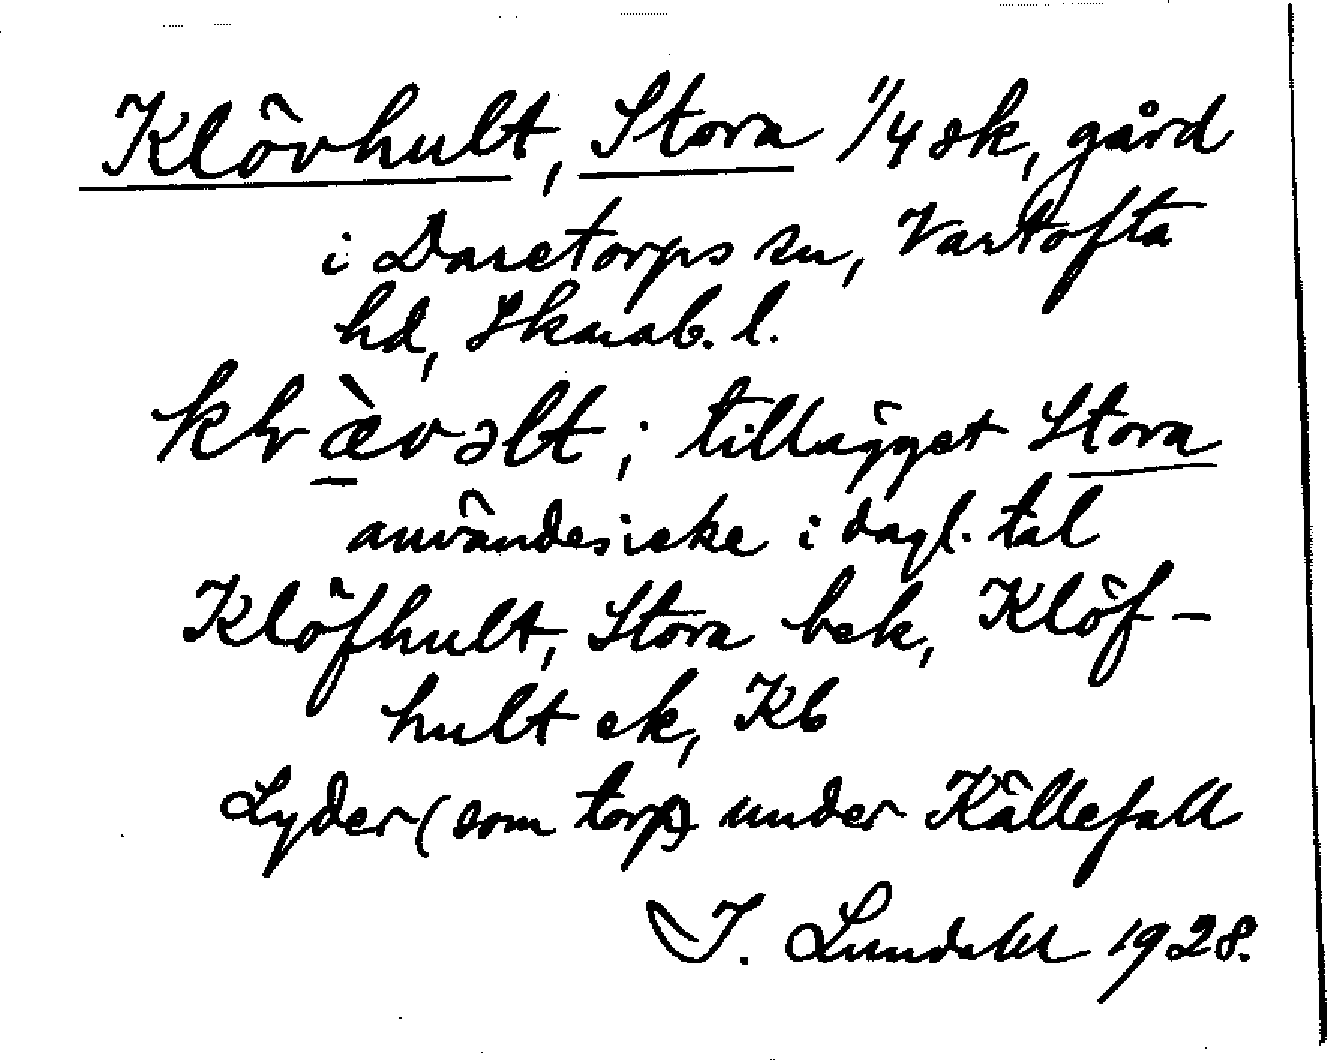 Klövhult, Stora 1/4 sk, gård
i Daretorps sn, Vartofta
hd, Skarab. l.
klævəlt; tillägget Stora
användes icke i dagl. tal
Klöfhult, Stora bek, Klöf-
hult ek, Kb
Lyder (som torp) under Källefall
I. Lundahl 1928.